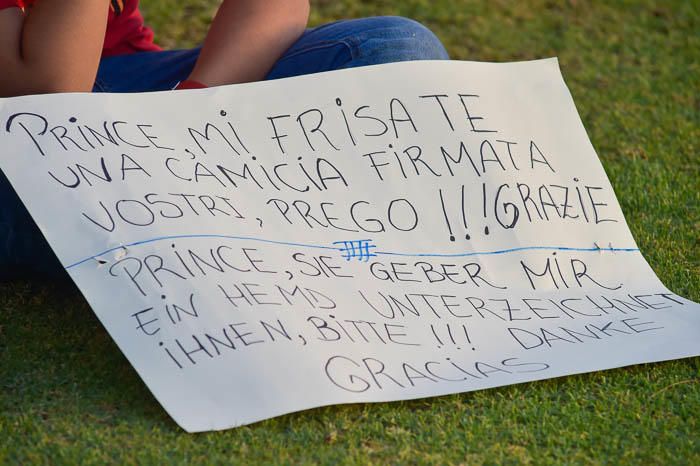 PRINCE, MI FRISATE
UNA CAMICIA FIRMATA
VOSTRI, PREGO !!! GRAZIE
PRINCE, SIE GEBER MIR
EIN HEMD UNTERZEICHNET
IHNEN, BITTE !!! DANKE
GRACIAS